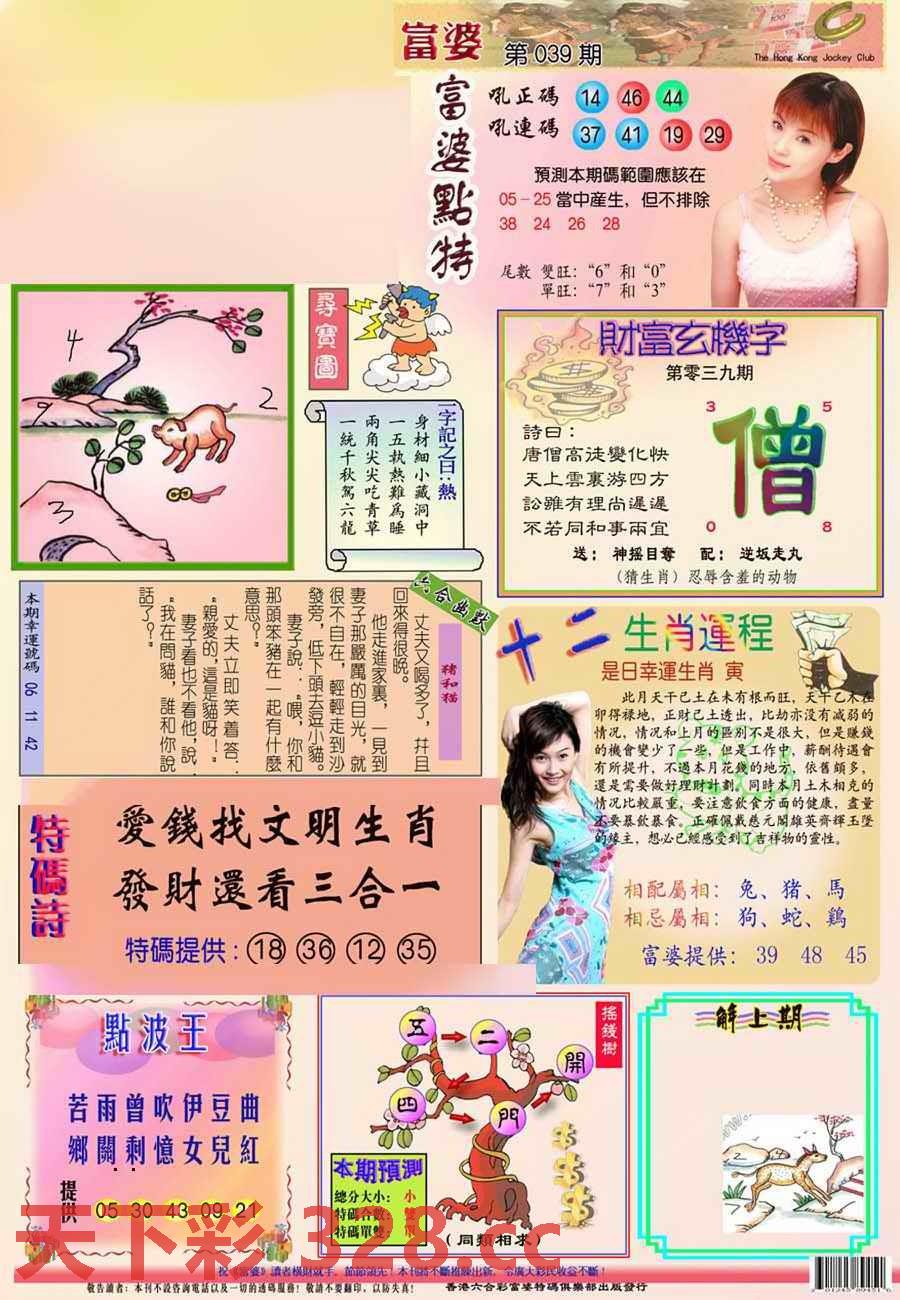 富婆 第039期
The Hong Kong Jockey Club
富婆點特
吼正碼 14 46 44
吼連碼 37 41 19 29
預測本期碼範圍應該在
05-25當中産生，但不排除
38 24 26 28
尾數 雙旺：“6”和“0”
單旺：“7”和“3”
4
2
9
3
尋寶圖
一字記之曰：熱
身材細小藏洞中
一五執熱難爲睡
兩角尖尖吃青草
一統千秋駕六龍
財富玄機字
第零三九期
詩曰：
唐僧高徒變化快
天上雲裏游四方
訟雖有理尚遲遲
不若同和事兩宜
3 5
僧
0 8
送：神摇目奪 配：逆坂走丸
（猜生肖）忍辱含羞的动物
本期幸運號碼 06 11 42
六合幽默
猪和猫
丈夫又喝多了，幷且
回來得很晚。
他走進家裏，一見到
妻子那嚴厲的目光，就
很不自在，輕輕走到沙
發旁，低下頭去逗小貓。
妻子說：“喂，你和
那頭笨豬在一起有什麽
意思？”
丈夫立即笑着答：
“親愛的，這是貓呀！”
妻子看也不看他，說：
“我在問貓，誰和你說
話了？”
十二生肖運程
是日幸運生肖 寅
此月天干己土在未有根而旺，天干乙木在
卯得祿地，正財己土透出，比劫亦没有减弱的
情况，情况和上月的區別不是很大，但是賺錢
的機會變少了一些，但是工作中，薪酬待遇會
有所提升，不過本月花錢的地方，依舊頗多，
還是需要做好理財計劃，同時本月土木相克的
情况比較嚴重，要注意飲食方面的健康，盡量
不要暴飲暴食。正確佩戴慈元閣雄英齊輝玉墜
的緣主，想必已經感受到了吉祥物的靈性。
相配屬相：兔、猪、馬
相忌屬相：狗、蛇、鷄
富婆提供：39 48 45
特碼詩
愛錢找文明生肖
發財還看三合一
特碼提供：18 36 12 35
點波王
苦雨曾吹伊豆曲
鄉關剩憶女兒紅
提供 05 30 43 09 21
搖錢樹
五 二 四 門 開
本期預測
總分大小：小
特碼合數：雙
特碼單雙：單
（同類相求）
解上期
2
天下彩 328.cc
祝《富婆》讀者横財就手，節節領先！本刊將不斷推陳出新，令廣大彩民收益不斷！
敬告讀者：本刊不設咨詢電話以及一切的透碼服務！敬請不要翻印，以防失真！
香港六合彩富婆特碼俱樂部出版發行